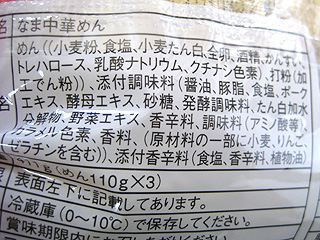 なま中華めん
めん((小麦粉、食塩、小麦たん白、全卵、酒精、かんすい、
トレハロース、乳酸ナトリウム、クチナシ色素)、打粉(加
工でん粉))、添付調味料(醤油、豚脂、食塩、ポーク
エキス、酵母エキス、砂糖、発酵調味料、たん白加水
分解物、野菜エキス、香辛料、調味料(アミノ酸等)、
カラメル色素、香料、(原材料の一部に小麦、りんご、
ゼラチンを含む))、添付香辛料(食塩、香辛料、植物油)
(めん110g×3)
表面左下に記載してあります。
冷蔵庫(0~10℃)で保存してください。
賞味期限内に